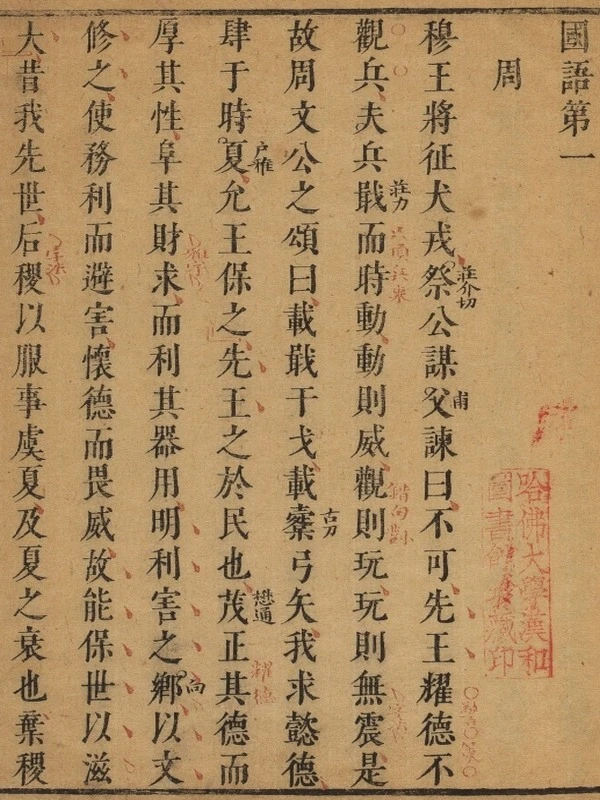 國語第一
周
穆王將征犬戎祭公謀父諫曰不可先王耀德不
莊介切
甫
觀兵夫兵戢而時動動則威觀則玩玩則無震是
莊力
故周文公之頌曰載戢干戈載櫜弓矢我求懿德
古刀
肆于時夏允王保之先王之於民也茂正其德而
戶雅
懋通
耀德
厚其性阜其財求而利其器用明利害之鄉以文
向
修之使務利而避害懷德而畏威故能保世以滋
大昔我先世后稷以服事虞夏及夏之衰也棄稷
哈佛大學漢和
圖書館珍藏印